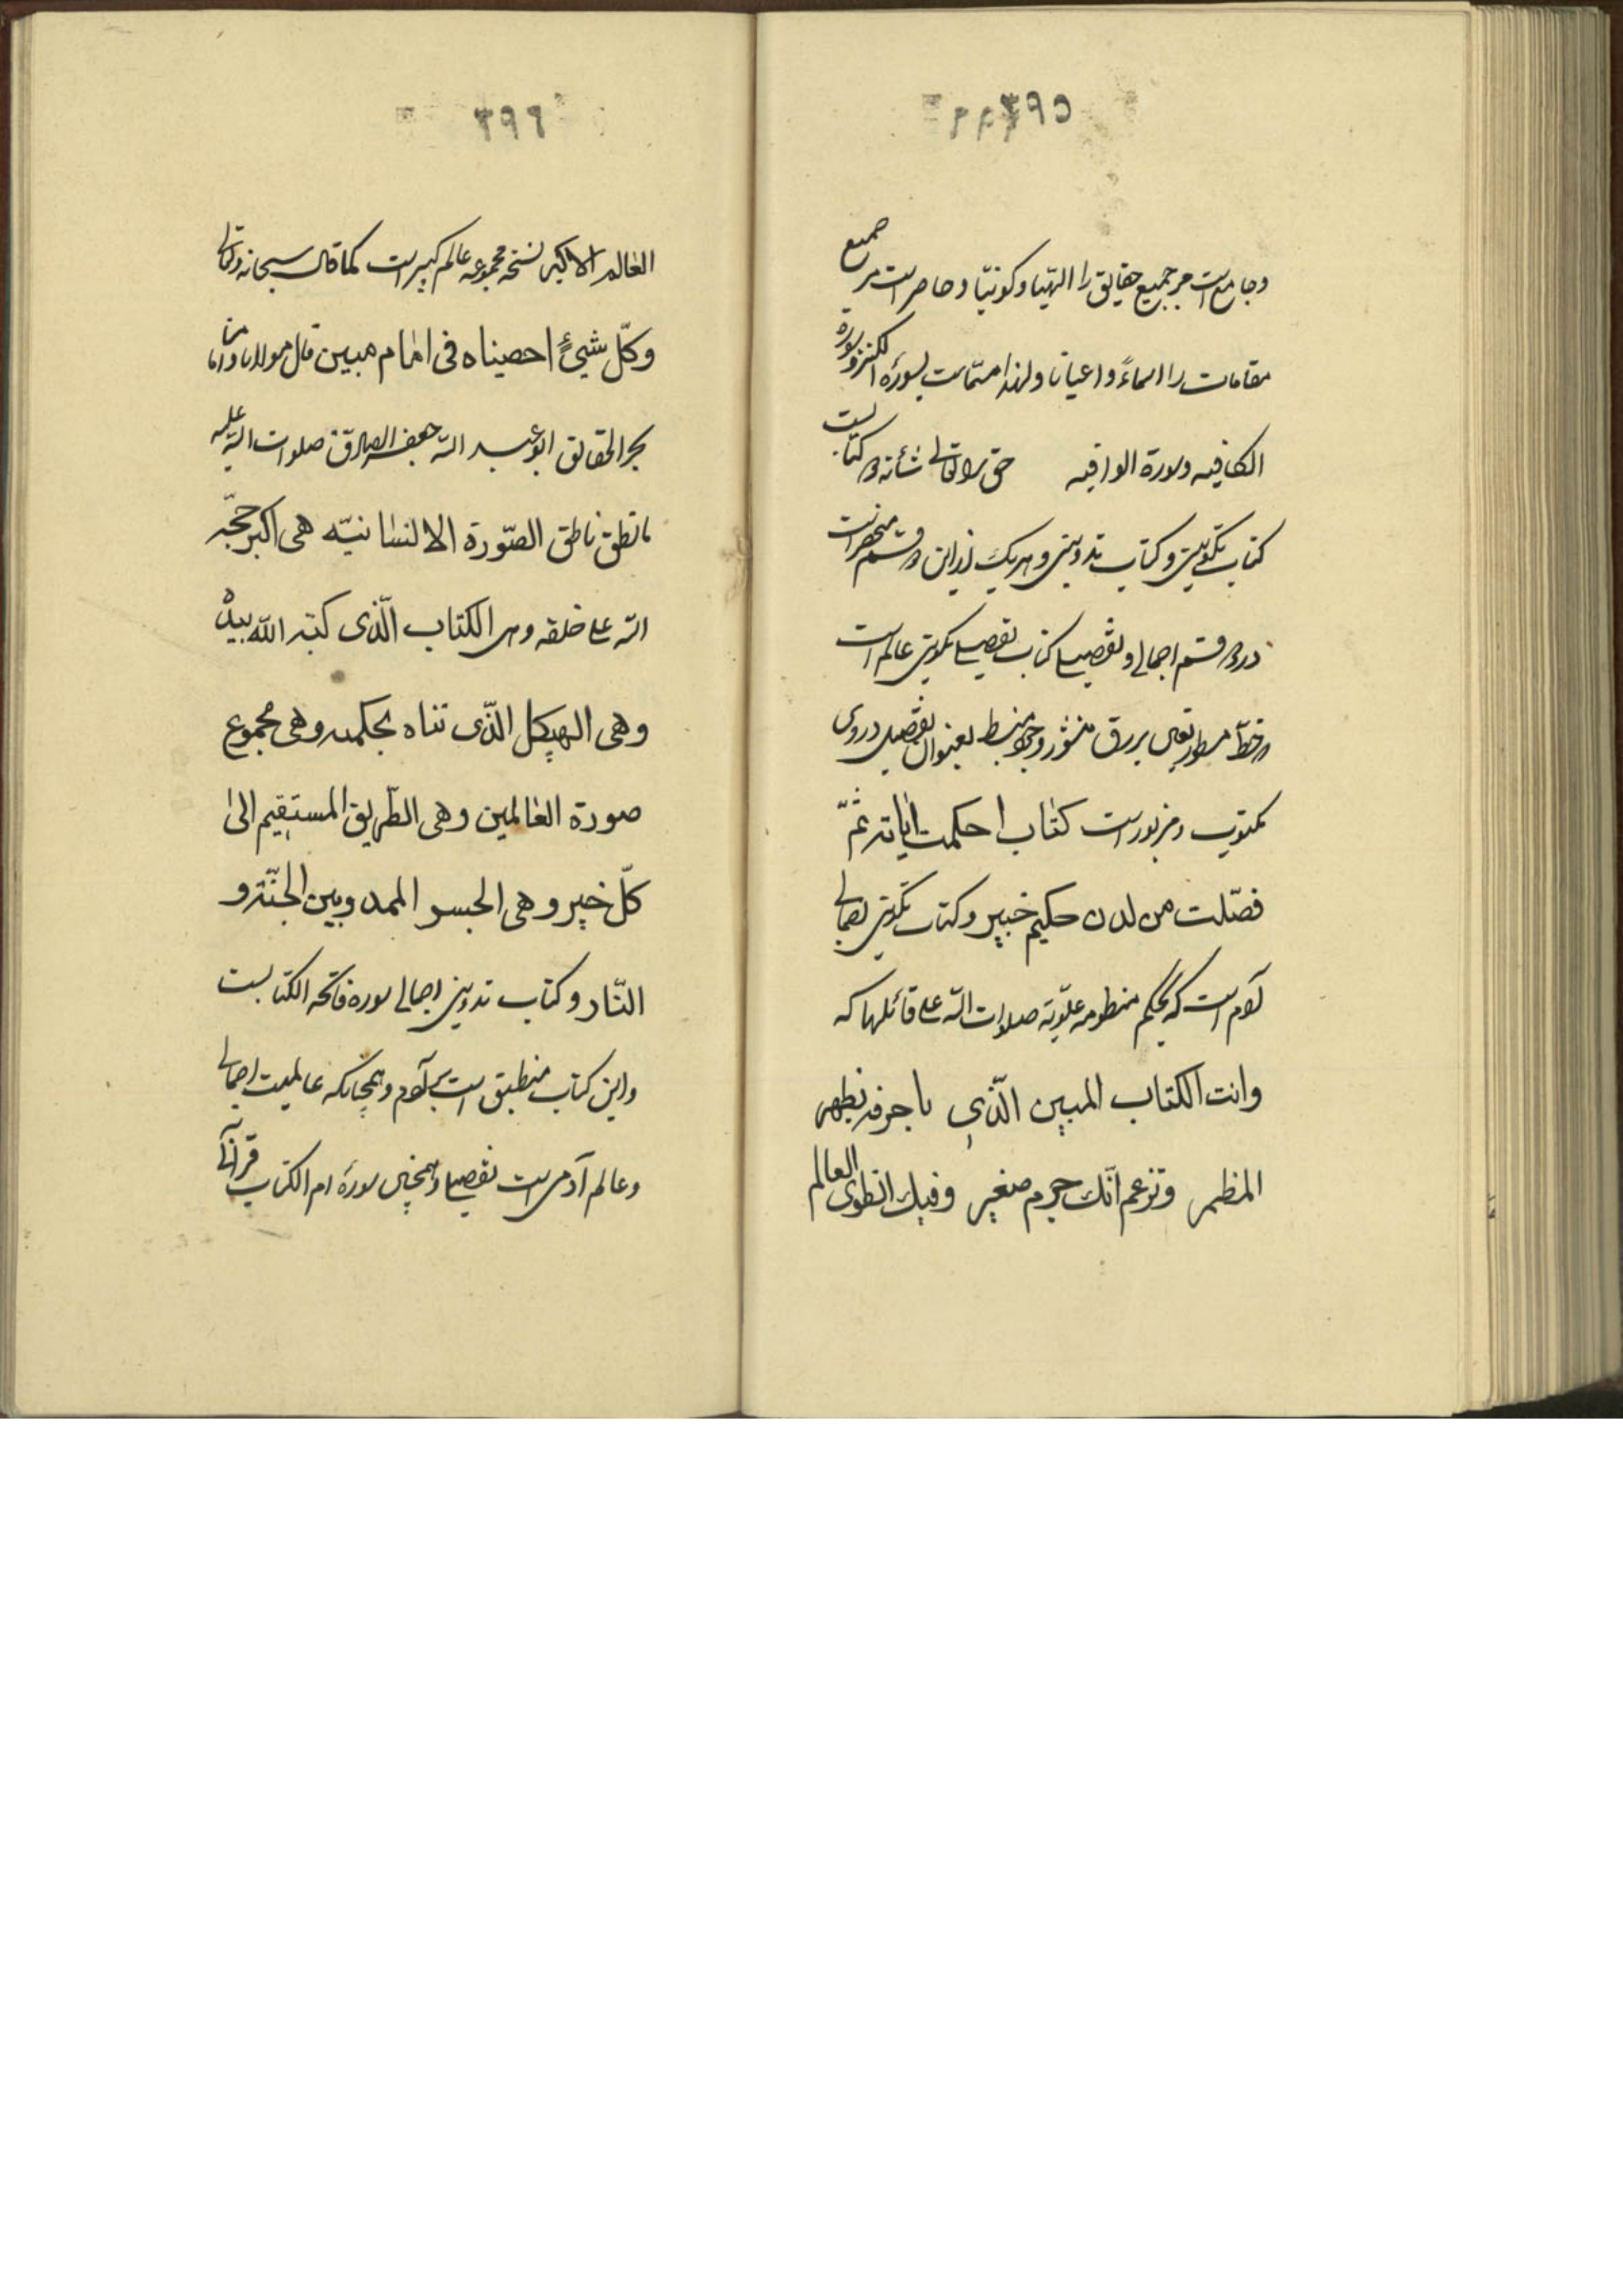 ۳۹۵
وجامع است مر جمیع حقایق را الهیّا وکونیّا وحاصر است مر جمیع
مقامات را اسماءً واعیانا ولهذا مسمّاست بسورة الکنز وسورة
الکافیه وسورة الوافیه حق تعالی شأنه را کتابیست
کتاب تکوینی وکتاب تدوینی وهریک از این دو قسم منحصر است
در دو قسم اجمالی وتفصیلی کتاب تفصیلی تکوینی عالم است
که خط مسطور تعین بر رق منشور وجود منبسط بعنوان تفصیل در وی
مکتوب ومزبور است کتاب احکمت ایاته ثمّ
فصّلت من لدن حکیم خبیر وکتاب تکوینی اجمالی
آدم است که بحکم منظومه علویّه صلوات الله علی قائلها که
وانت الکتاب المبین الّذی باحرفه یظهر
المظمر وتزعم انّک جرم صغیر وفیک انطوی العالم
۳۹۶
العالم الاکبر نسخه مجموعه عالم کبیر است کما قال سبحانه وتعالی
وکلّ شیئٍ احصیناه فی امام مبین قال مولانا وامامنا
بحر الحقایق ابو عبد الله جعفر الصادق صلوات الله علیه
ما نطق ناطق الصّورة الانسانیّه هی اکبر حجّه
الله علی خلقه وهی الکتاب الّذی کتبه الله بیده
وهی الهیکل الّذی بناه بحکمته وهی مجموع
صورة العالمین وهی الطّریق المستقیم الی
کلّ خیر وهی الجسر الممدود بین الجنّة و
النّار وکتاب تدوینی اجمالی سوره فاتحه الکتابست
واین کتاب منطبق است بر آدم وهمچنانکه عالمیت اجمالی
وعالم آدمی است تفصیلی وهمچنین سورة ام الکتاب قرآنی